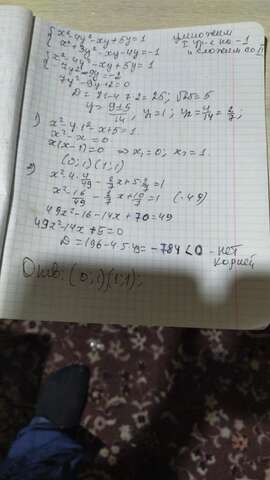 x²-4y²-xy+5y=1
x²+3y²-xy-4y=-1
умножим
I ур-е на -1
и сложим со II
x²-4y²-xy+5y=1
7y²-9y=-2
7y²-9y+2=0
D=81-4·7·2=25; √25=5
y=(9±5)/14, y₁=1; y₂=4/14=2/7;
1) x²-4·1²-x+5=1
x²-x=0
x(x-1)=0 => x₁=0; x₂=1.
(0;1)(1;1)
2) x²-4·4/49-2/7x+5·2/7=1
x²-16/49-2/7x+10/7=1 (·49)
49x²-16-14x+70=49
49x²-14x+5=0
D=196-4·5·49=-784<0 - нет
корней
Ответ. (0;1)(1;1);